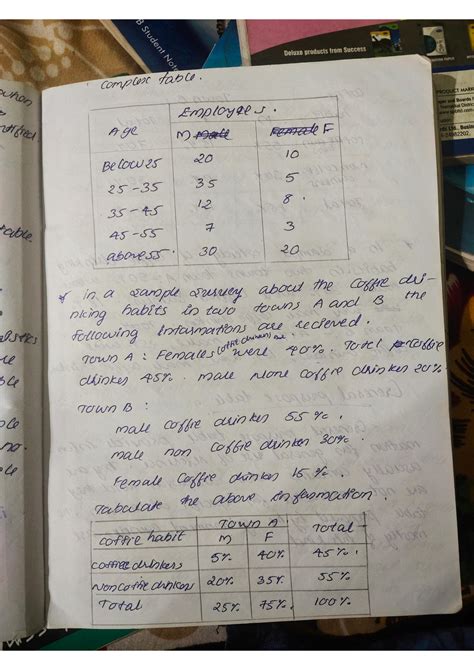 B Student Note
Deluxe products from Success
PRODUCT MARK
complex table.
Employees.
Age M male Female F
Below 25 20 10
25 - 35 35 5
35 - 45 12 8
45 - 55 7 3
above 55 30 20
* in a sample survey about the coffee dri-
nking habits in two towns A and B the
following informations are recieved.
Town A : Females coffee drinkers were 40%. Total coffee
drinker 45%. male none coffee drinker 20%
Town B :
male coffee drinker 55 %.
male non coffee drinker 30%.
Female coffee drinker 15 %.
Tabulate the above information
coffee habit Town A Total
M F
coffee drinkers 5% 40% 45%.
Noncoffee drinkers 20% 35% 55%
Total 25% 75% 100%